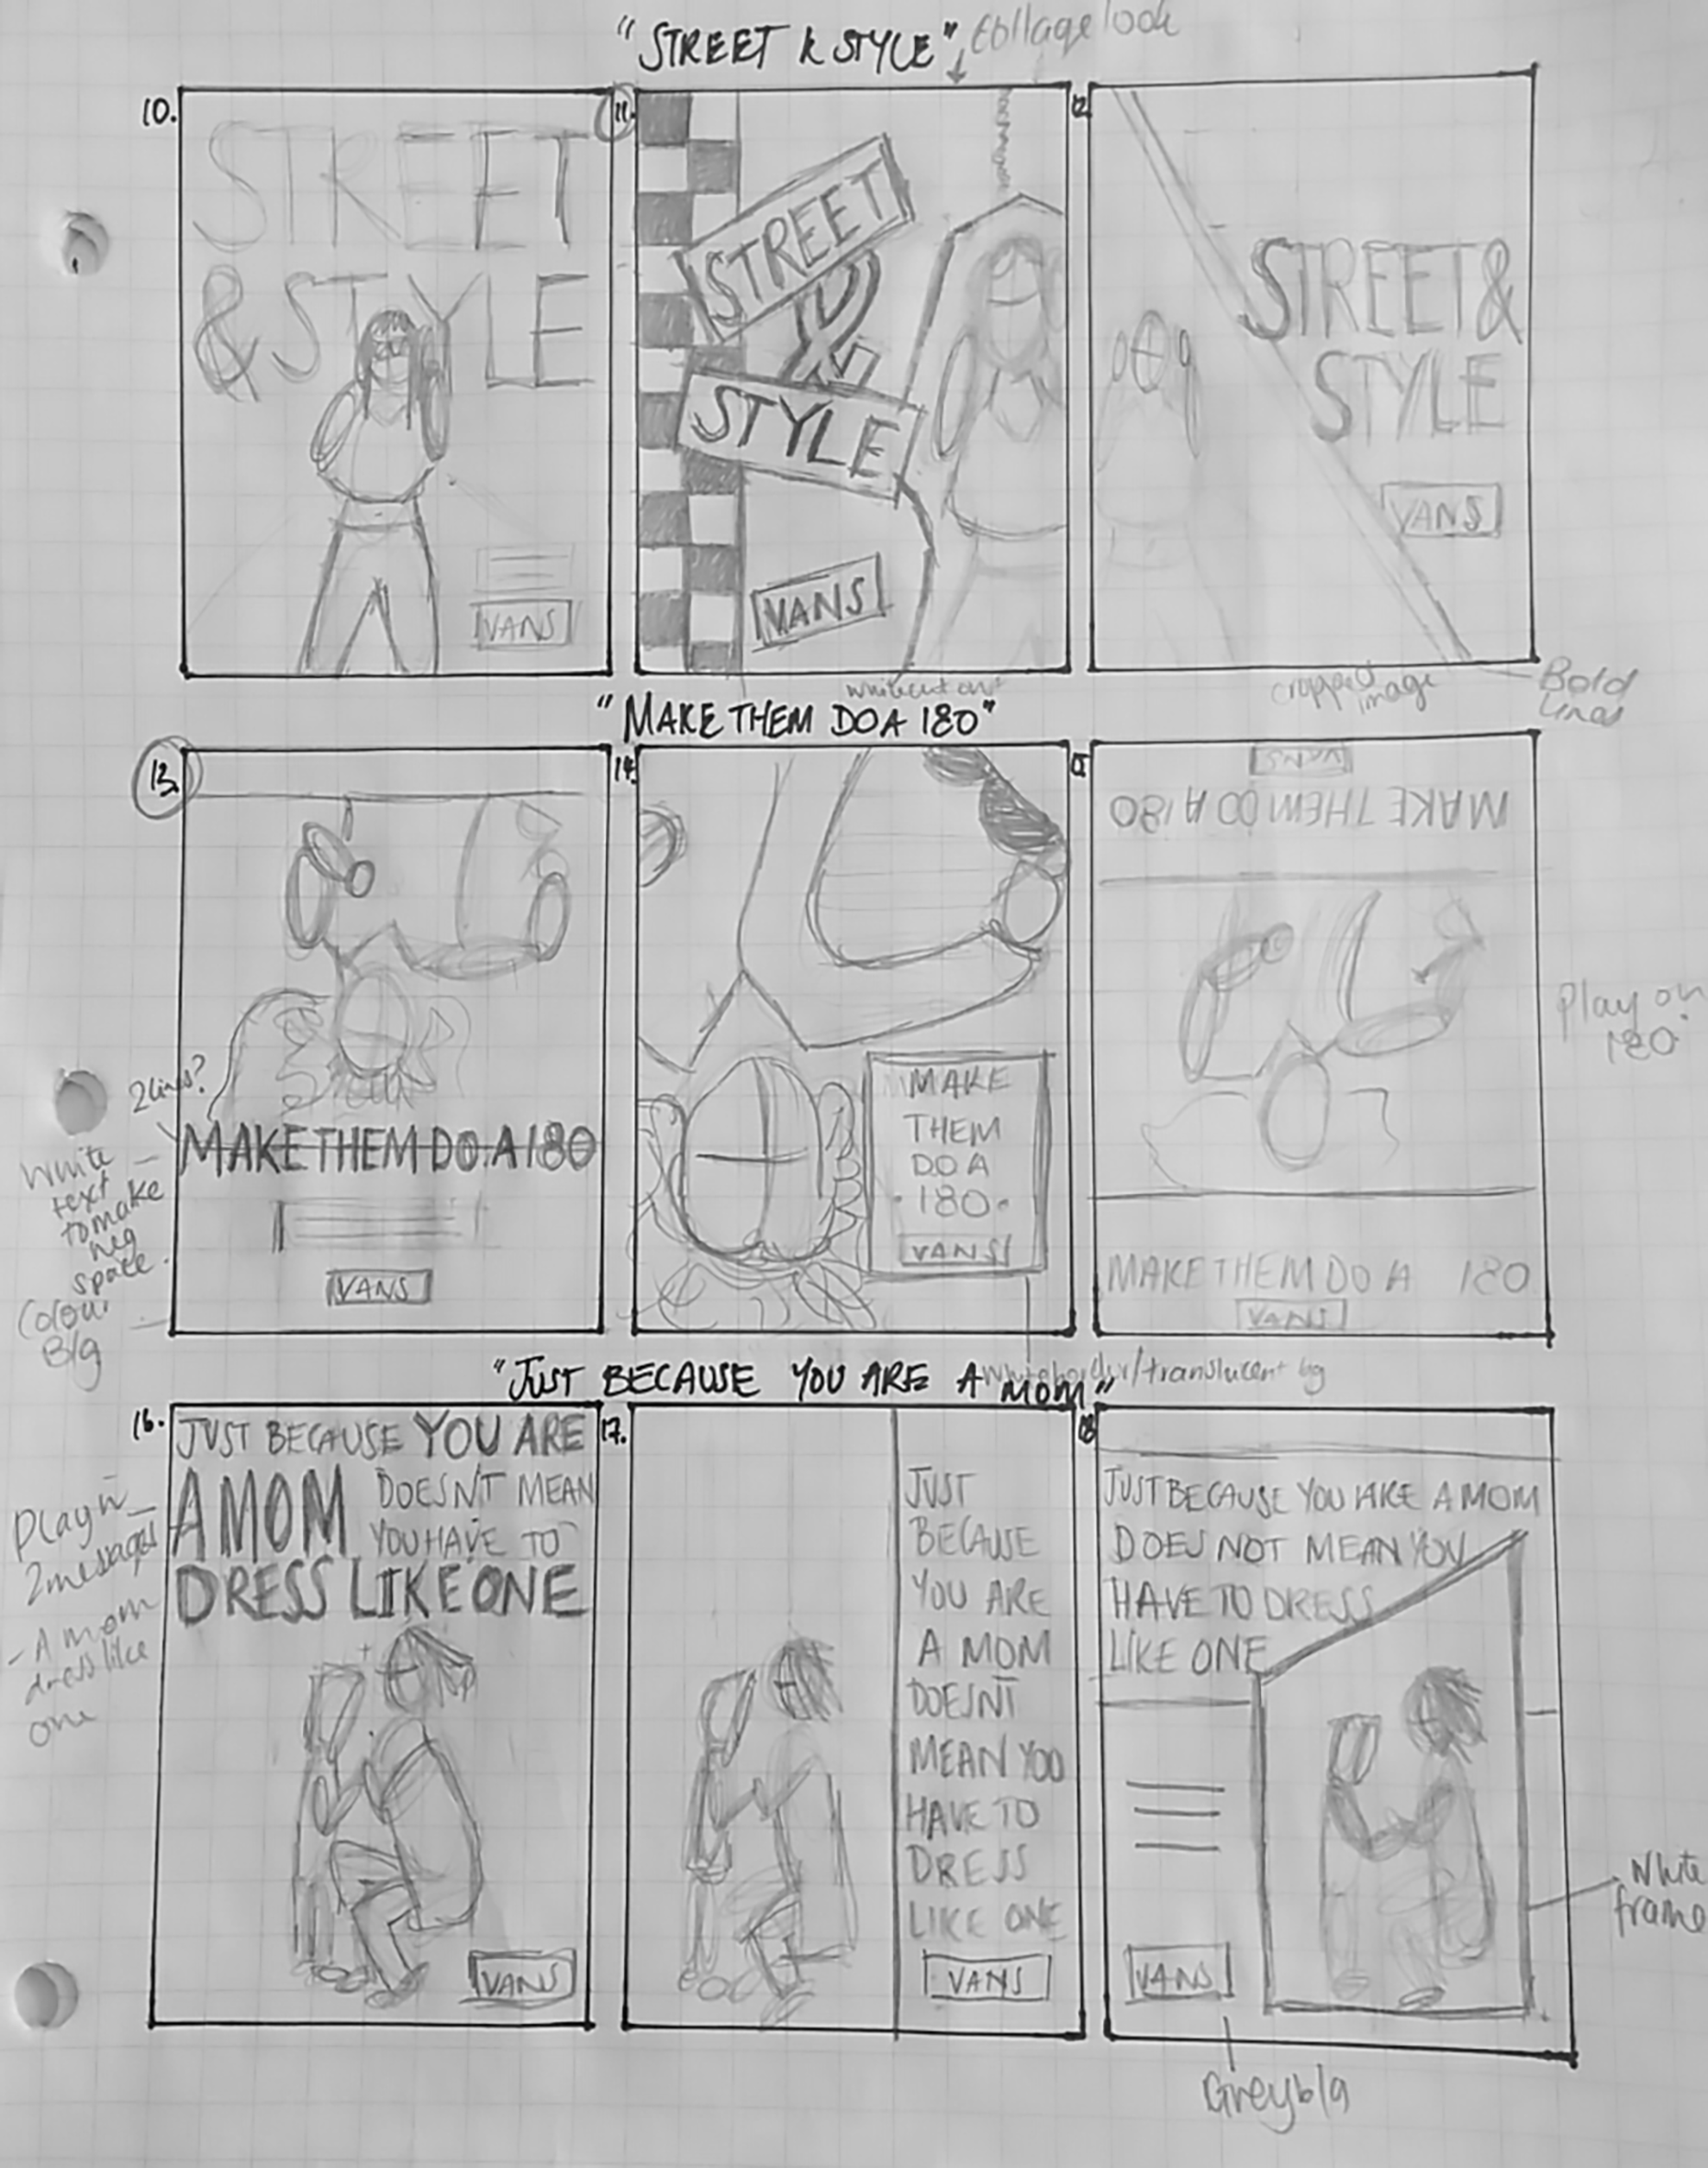 "STREET & STYLE" Collage look
10.
STREET
& STYLE
VANS
11.
STREET
&
STYLE
VANS
12.
STREET &
STYLE
VANS
cropped
image
Bold
lines
"MAKE THEM DO A 180"
13.
2 lines?
MAKE THEM DO A 180
White
text
to make
neg
space.
Colour
B/g
VANS
14.
MAKE
THEM
DO A
180.
VANS
15
VANS
MAKE THEM DO A 180
MAKE THEM DO A 180
VANS
Play on
180
"JUST BECAUSE YOU ARE A MOM"
White border/translucent bg
16.
JUST BECAUSE YOU ARE
A MOM DOESN'T MEAN
YOU HAVE TO
DRESS LIKE ONE
VANS
2 messages
- A mom
dress like
one
17.
JUST
BECAUSE
YOU ARE
A MOM
DOESN'T
MEAN YOU
HAVE TO
DRESS
LIKE ONE
VANS
18
JUST BECAUSE YOU ARE A MOM
DOES NOT MEAN YOU
HAVE TO DRESS
LIKE ONE
VANS
White
frame
Grey b/g